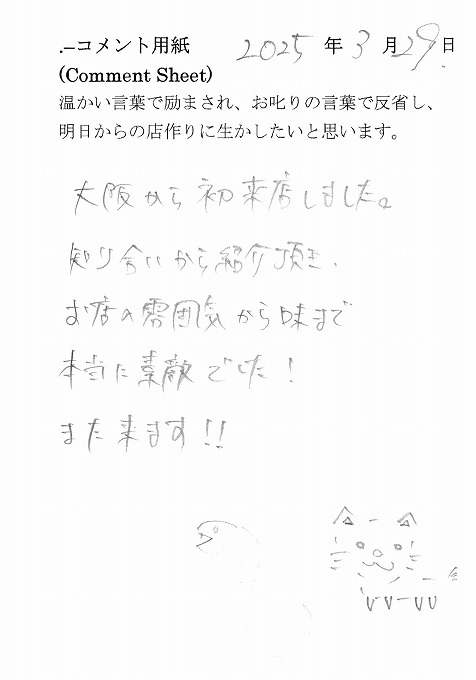 .–コメント用紙 2025 年 3 月 29 日
(Comment Sheet)
温かい言葉で励まされ、お叱りの言葉で反省し、
明日からの店作りに生かしたいと思います。
大阪から初来店しました。
知り合いから紹介頂き、
お店の雰囲気から味まで
本当に素敵でした!
また来ます!!